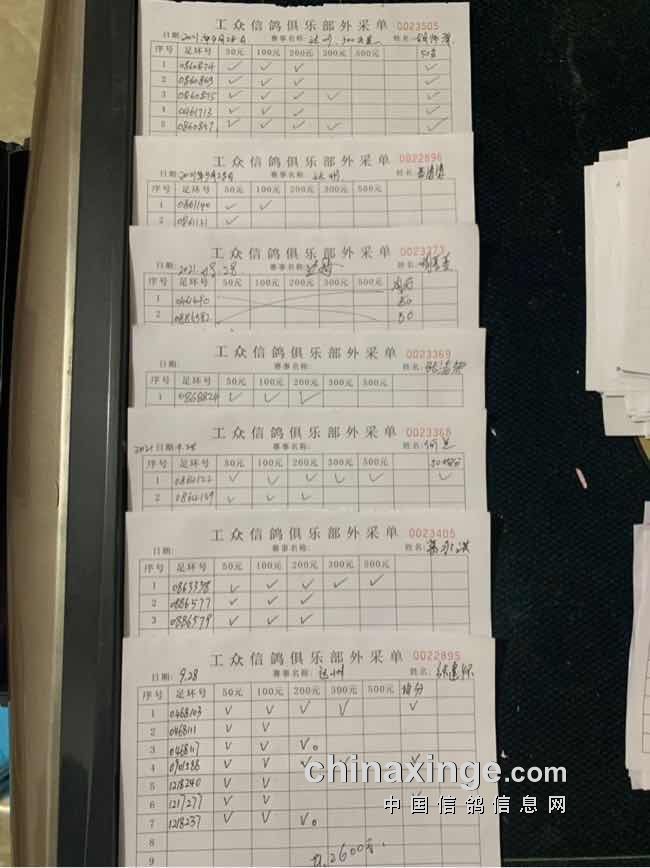 工众信鸽俱乐部外采单 0023505
日期: 2021年9月28日 赛事名称: 达州 姓名:
序号 足环号 50元 100元 200元 300元 500元
1 0860874 ✓ ✓ ✓ ✓
2 0860869 ✓ ✓ ✓ ✓
3 0860875 ✓ ✓ ✓ ✓ ✓
4 0461713 ✓ ✓ ✓ ✓
5 0860857 ✓ ✓ ✓ ✓ ✓
工众信鸽俱乐部外采单 0022896
日期: 2021年9月28日 赛事名称: 达州 姓名:
序号 足环号 50元 100元 200元 300元 500元
1 0861140 ✓ ✓
2 0861121 ✓
工众信鸽俱乐部外采单 0023273
日期: 2021.9.28 赛事名称: 姓名:
序号 足环号 50元 100元 200元 300元 500元
1 50
2 50
工众信鸽俱乐部外采单 0023369
日期: 赛事名称: 姓名:
序号 足环号 50元 100元 200元 300元 500元
1 0868824 ✓ ✓ ✓
工众信鸽俱乐部外采单 0023368
2021 日期: 9.28 赛事名称: 姓名:
序号 足环号 50元 100元 200元 300元 500元
1 0862122 ✓ ✓ ✓ ✓ ✓ ✓
2 0862159 ✓ ✓ ✓
工众信鸽俱乐部外采单 0023405
日期: 赛事名称: 姓名:
序号 足环号 50元 100元 200元 300元 500元
1 0863338 ✓ ✓ ✓ ✓ ✓
2 0886577 ✓ ✓ ✓
3 0886579 ✓ ✓ ✓
工众信鸽俱乐部外采单 0022895
日期: 9.28 赛事名称: 达州 姓名:
序号 足环号 50元 100元 200元 300元 500元 均分
1 0468103 ✓ ✓ ✓ ✓ ✓
2 0468111 ✓ ✓
3 0468117 ✓ ✓ ✓
4 0901288 ✓ ✓ ✓ ✓ ✓
5 1218240 ✓ ✓
6 1217277 ✓ ✓ ✓
7 1218237 ✓ ✓ ✓
8
9 2600
chinaxinge.com
中国信鸽信息网